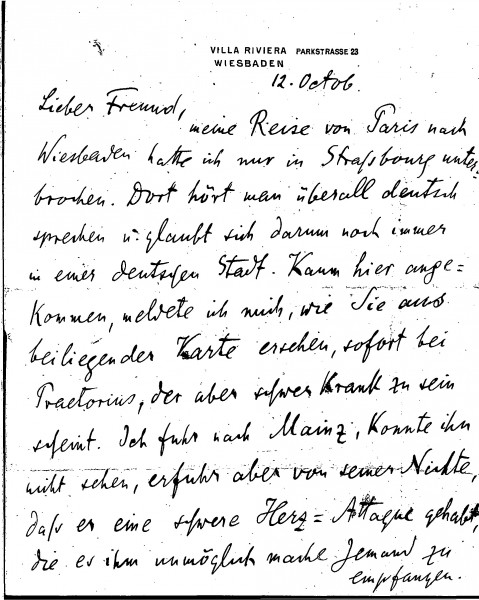 VILLA RIVIERA PARKSTRASSE 23
WIESBADEN
12. Octob.
Lieber Freund,
meine Reise von Paris nach
Wiesbaden hatte ich nur in Straßbourg unter-
brochen. Dort hört man überall deutsch
sprechen u. glaubt sich darum noch immer
in einer deutschen Stadt. Kaum hier ange=
kommen, meldete ich mich, wie Sie aus
beiliegender Karte ersehen, sofort bei
Praetorius, der aber schwer krank zu sein
scheint. Ich fuhr nach Mainz, konnte ihn
nicht sehen, erfuhr aber von seiner Nichte,
daß er eine schwere Herz=Attaque gehabt,
die es ihm unmöglich mache Jemand zu
empfangen.